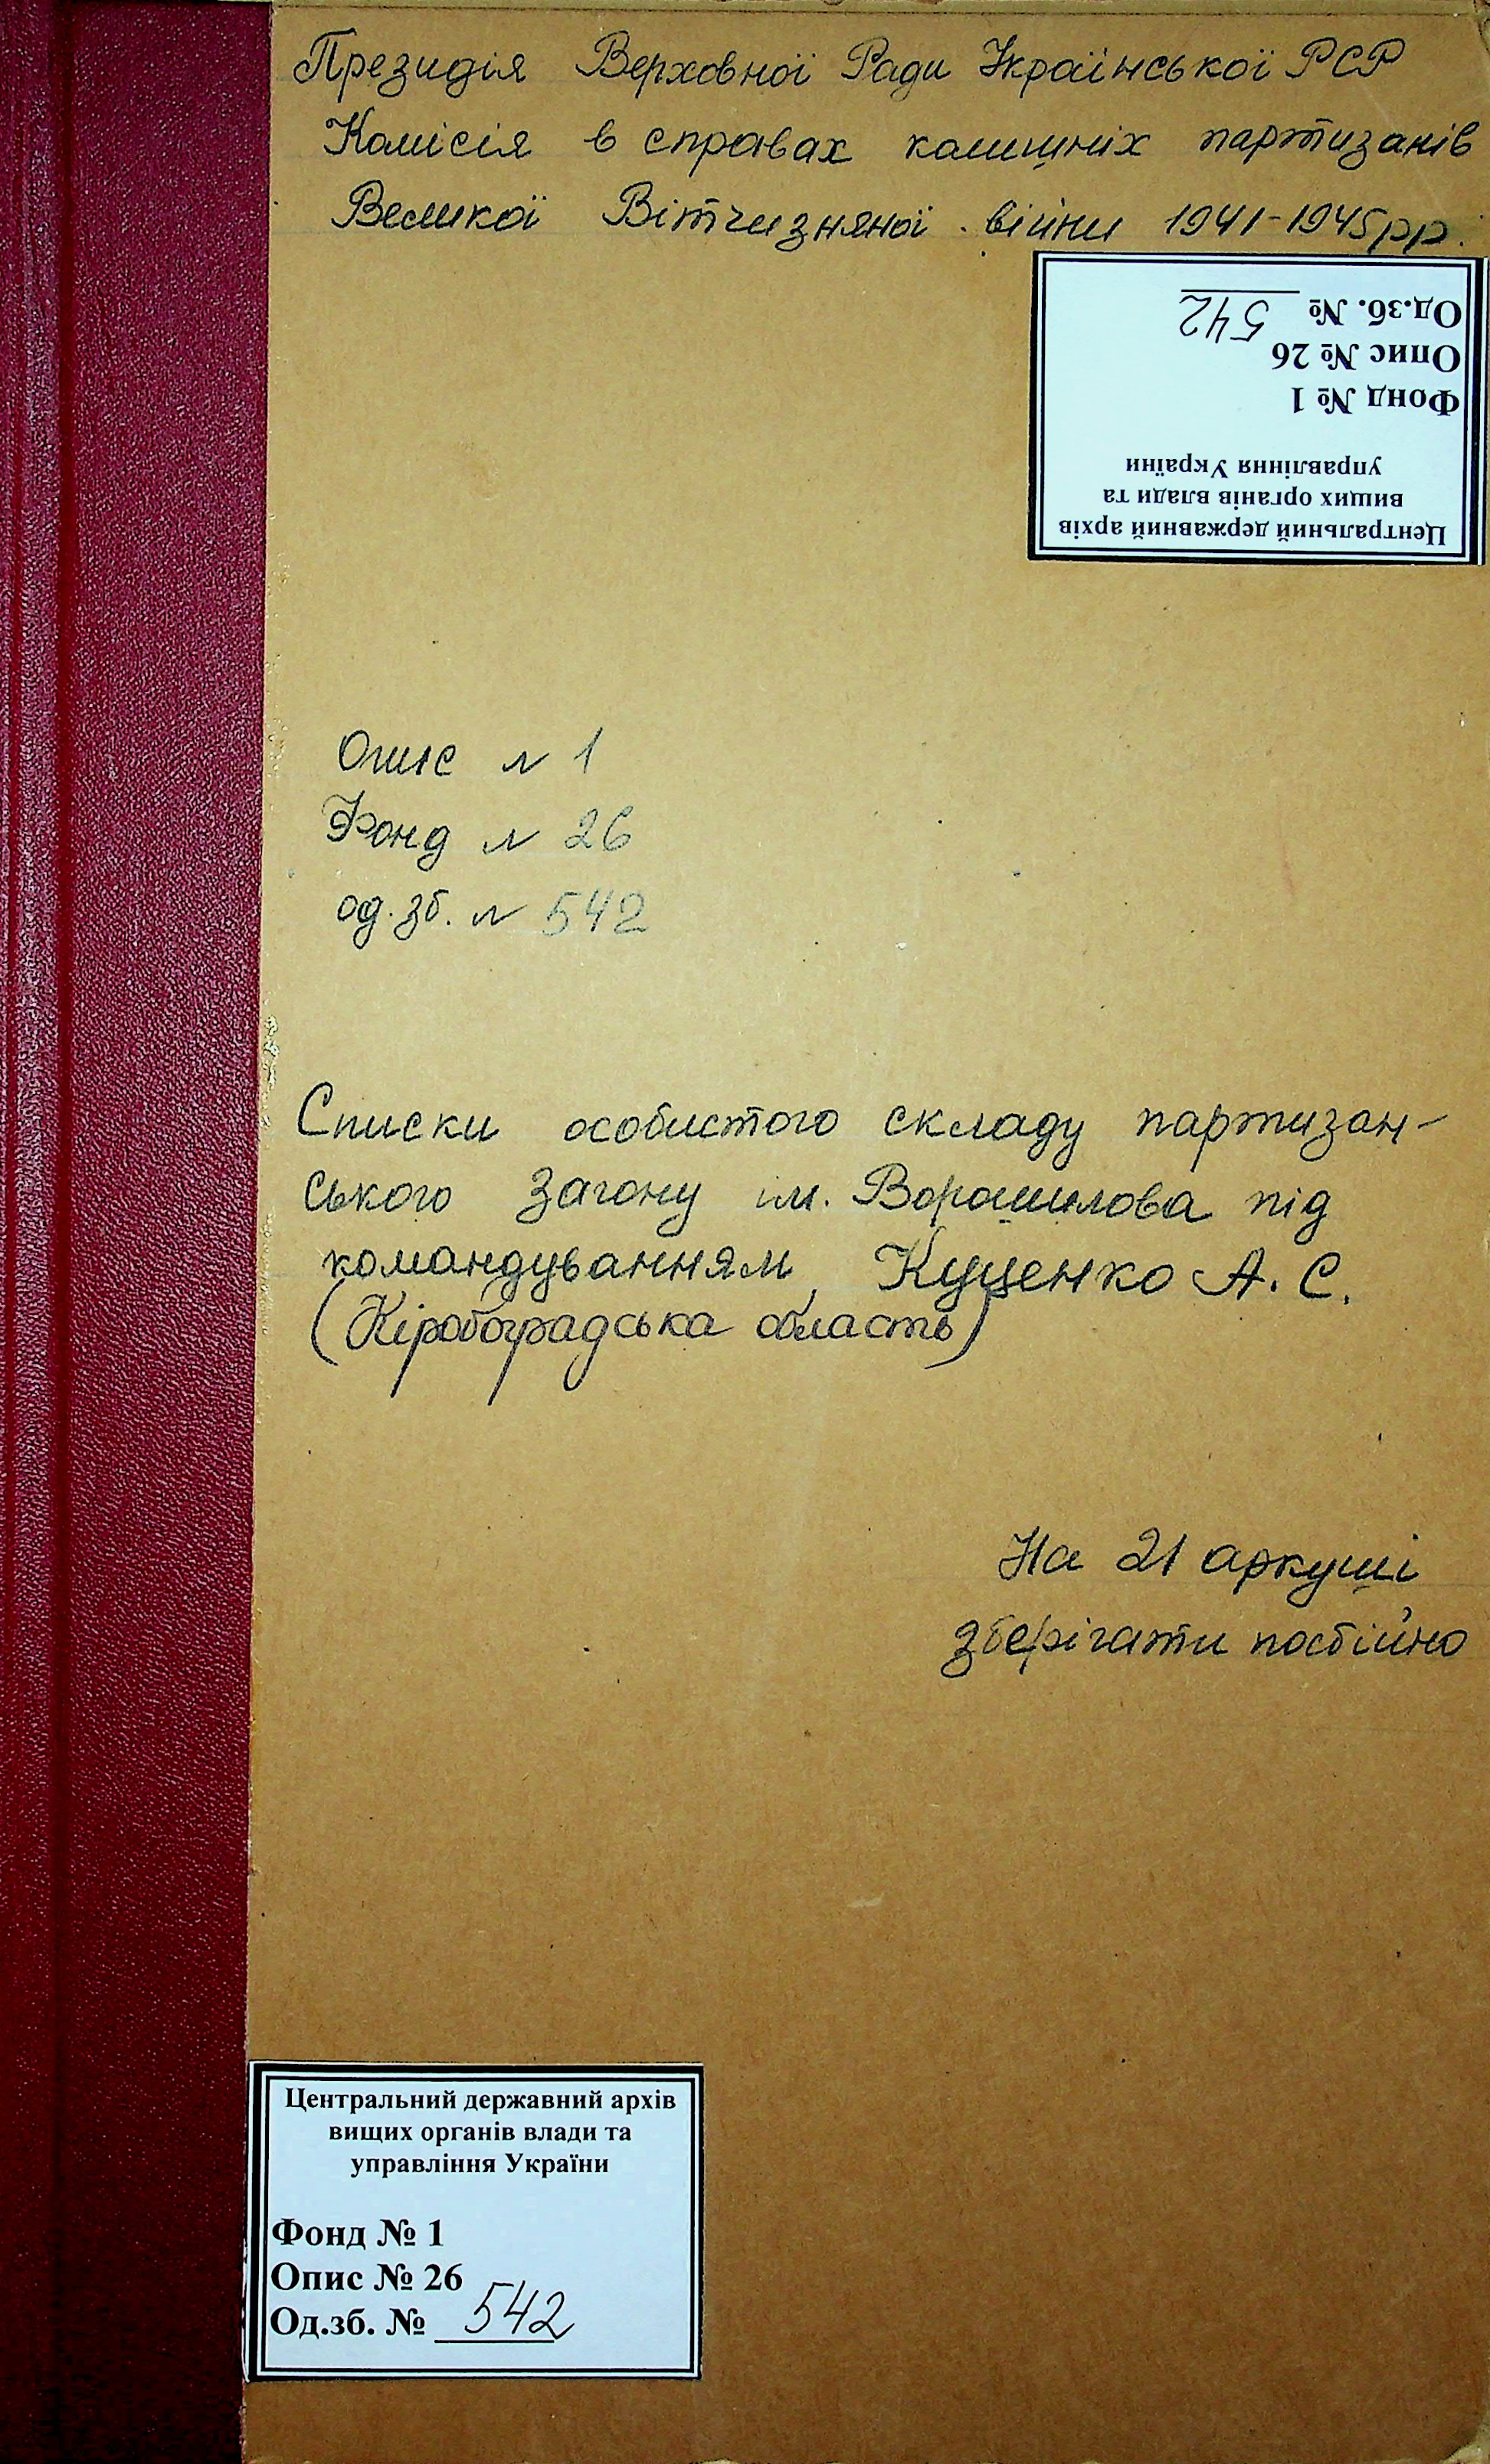 Президія Верховної Ради Української РСР
Комісія в справах колишніх партизанів
Великої Вітчизняної війни 1941-1945рр.
Од.зб. № 542
Опис № 26
Фонд № 1
управління України
вищих органів влади та
Центральний державний архів
Опис № 1
Фонд № 26
од. зб. № 542
Списки особистого складу партизан-
ського загону ім. Ворошилова під
командуванням Куценко А. С.
(Кіровоградська область)
На 21 аркуші
зберігати постійно
Центральний державний архів
вищих органів влади та
управління України
Фонд № 1
Опис № 26
Од.зб. № 542